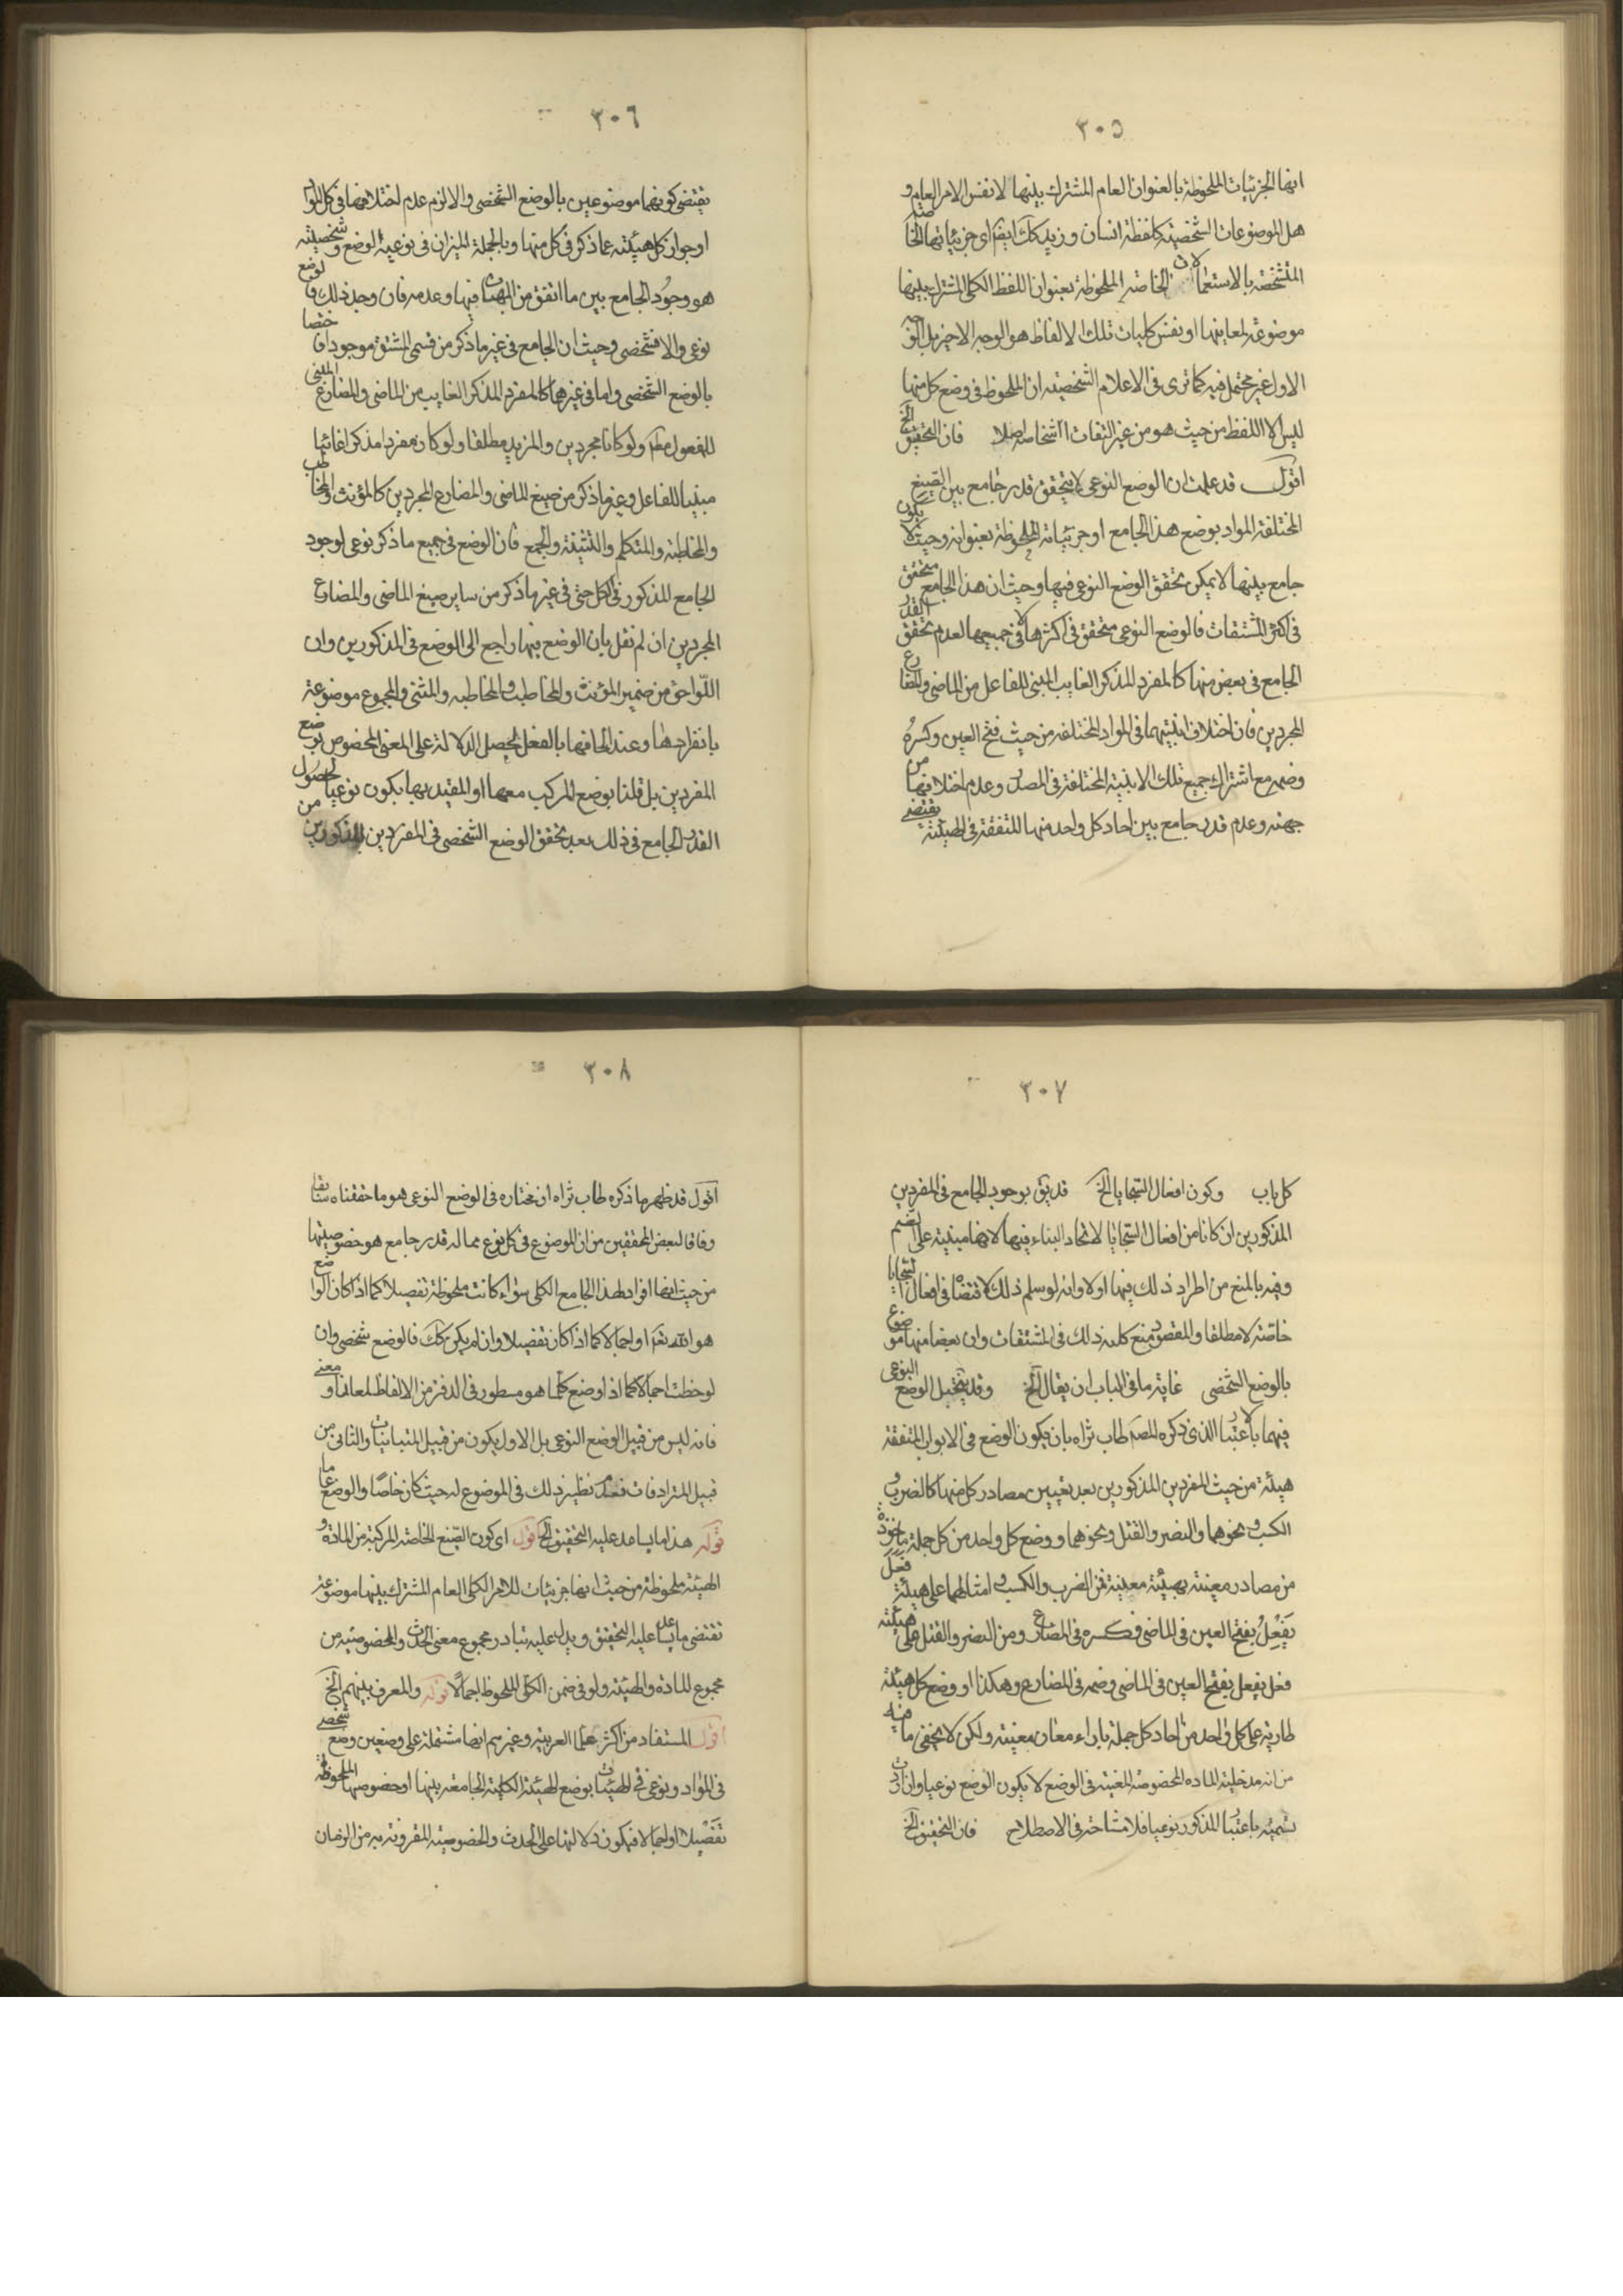 ٣٠٥
انها الجزئيات الملحوظة بالعنوان العام المشترك بينها لا نفس الامر العام و
هل الموضوعات الشخصية كلفظة انسان وزيد كك ايضا اى جزئياتها الخاصة
المتشخصة بالاستعمالات الخاصة الملحوظة بعنوان اللفظ الكلى المشترك بينها
موضوعة لمعانيها او نفس كليات تلك الالفاظ هو الوجه الاخير بل الوجه
الاول غير محتمل فيه كما ترى فى الاعلام الشخصية ان الملحوظ فى وضع كل منها
ليس الا اللفظ من حيث هو من غير التفات الى اشخاصه اصلا فان التحقيق الخ
اقول قد علمت ان الوضع النوعى لا يتحقق قدر جامع بين الصيغ
المختلفة المواد بوضع هذا الجامع او جزئياته الملحوظة بعنوانه وحيث لا يكون
جامع بينها لا يمكن تحقق الوضع النوعى فيها وحيث ان هذا الجامع متحقق
فى اكثر المشتقات فالوضع النوعى متحقق فى اكثرها لا فى جميعها لعدم تحقق القدر
الجامع فى بعض منها كالمفرد المذكر الغايب المبنى للفاعل من الماضى والمضارع
المجردين فان اختلاف ابنيتهما فى المواد المختلفة من حيث فتح العين وكسره
وضمه مع اشتراك جميع تلك الابنية المختلفة فى المصدر وعدم اختلافها من
جهته وعدم قدر جامع بين احاد كل واحد منها المتفقة فى الهيئة يقتضى
٣٠٦
يقتضى كونهما موضوعين بالوضع الشخصى والا لزم عدم اختلافهما فى كل المواد
او جواز كل هيئته عما ذكر فى كل منها وبالجملة الميزان فى نوعية الوضع وشخصيته
هو وجود الجامع بين ما اتفق من الهيئات فيها وعدمه فان وجد ذلك فالوضع
نوعى والا فشخصى وحيث ان الجامع فى غير ما ذكر من قسمى المشتق موجود
بالوضع الشخصى واما فى غيرهما كالمفرد المذكر الغايب من الماضى والمضارع المبنى
للمفعول مطلقا ولو كانا مجردين والمزيد مطلقا ولو كان مفردا مذكرا غائبا
مبنيا للفاعل وغير ما ذكر من صيغ الماضى والمضارع المجردين كالمؤنث والمخاطب
والمخاطبة والمتكلم والتثنية والجمع فان الوضع فى جميع ما ذكر نوعى لوجود
الجامع المذكور فى الكل حتى فى غير ما ذكر من ساير صيغ الماضى والمضارع
المجردين ان لم نقل بان الوضع فيها راجع الى الوضع فى المذكورين وان
اللواحق من ضمير المؤنث والمخاطب والمخاطبه والمثنى والمجموع موضوعة
بانفرادها وعند الحاقها بالفعل يحصل الدلالة على المعنى المخصوص بوضع
المفردين بل قلنا بوضع المركب معها او المقيد بها يكون نوعيا لحصول
القدر الجامع فى ذلك بعد تحقق الوضع الشخصى فى المفردين المذكورين من
٣٠٧
كل باب وكون افعال السجايا الخ قد يق بوجود الجامع فى المفردين
المذكورين ان كانا من افعال السجايا لاتحاد البناء فيها لانها مبنية على الضم
وفيه بالمنع من اطراد ذلك فيها اولا وانه لو سلم ذلك لاقتضاه فى افعال السجايا
خاصة لا مطلقا والمقصود منع كلية ذلك فى المشتقات وان بعضا منها موضوع
بالوضع الشخصى غاية ما فى الباب ان يقال الخ وقد يتخيل الوضع النوعى
فيهما بالاعتبار الذى ذكره المصر طاب ثراه بان يكون الوضع فى الابواب المتفقة
هيئة من حيث المفردين المذكورين بعد تعيين مصادر كل منها كالضرب و
الكسب ونحوهما والنصر والقتل ونحوهما ووضع كل واحد من كل جملة ماخوذة
من مصادر معينة بهيئة معينة فمن الضرب والكسب وامثالهما على هيئة فعل
يفعل بفتح العين فى الماضى وكسره فى المضارع ومن النصر والقتل على هيئته
فعل يفعل بفتح العين فى الماضى وضمه فى المضارع وهكذا او وضع كل هيئة
طارية على كل واحد من احاد كل جملة بازاء معان معينة ولكن لا يخفى ما فيه
من انه مدخلية الماده المخصوصة المعينة فى الوضع لا يكون الوضع نوعيا وان
تسميته باعتبار المذكور نوعيا فلا مشاحة فى الاصطلاح فان التحقيق الخ
٣٠٨
اقول قد ظهر ما ذكره طاب ثراه ان مختاره فى الوضع النوعى هو ما حققناه سابقا
وفاقا لبعض المحققين من ان الموضوع فى كل نوع مما له قدر جامع هو خصوصيتها
من حيث انها افراد لهذا الجامع الكلى سواء كانت ملحوظة تفصيلا كما اذا كان الواضع
هو الله تعم او اجمالا كما اذا كان تفصيلا وان لم يكن كك فالوضع شخصى وان
لوحظت اجمالا كما اذا وضع كلما هو مسطور فى الدفتر من الالفاظ لمعان او معنى
فانه ليس من قبيل الوضع النوعى بل الاول يكون من قبيل المتباينات والثانى من
قبيل المترادفات نظير ذلك فى الموضوع له حيث كان خاصا والوضع عاما
قوله هذا ما يساعد عليه التحقيق الخ اقول اى كون الصيغ الخاصة المركبة من المادة و
الهيئة ملحوظة من حيث انها جزئيات للامر الكلى العام المشترك بينها موضوعة
تقتضى ما يساعد عليه التحقيق ويدل عليه تبادر مجموع معنى الحدث والخصوصية من
مجموع المادة والهيئة ولو فى ضمن الكلى الملحوظ اجمالا قوله والمعروف بينهم الخ
اقول المستفاد من اكثر علماء العربية وغيرهم انها مشتملة على وضعين وضع شخصى
فى المواد ونوعى فى الهيئات بوضع الهيئة الكلية الجامعة بينها او خصوصها الملحوظة
تفصيلا او اجمالا فيكون دلالتها على الحدث والخصوصية المقرونة به من الزمان